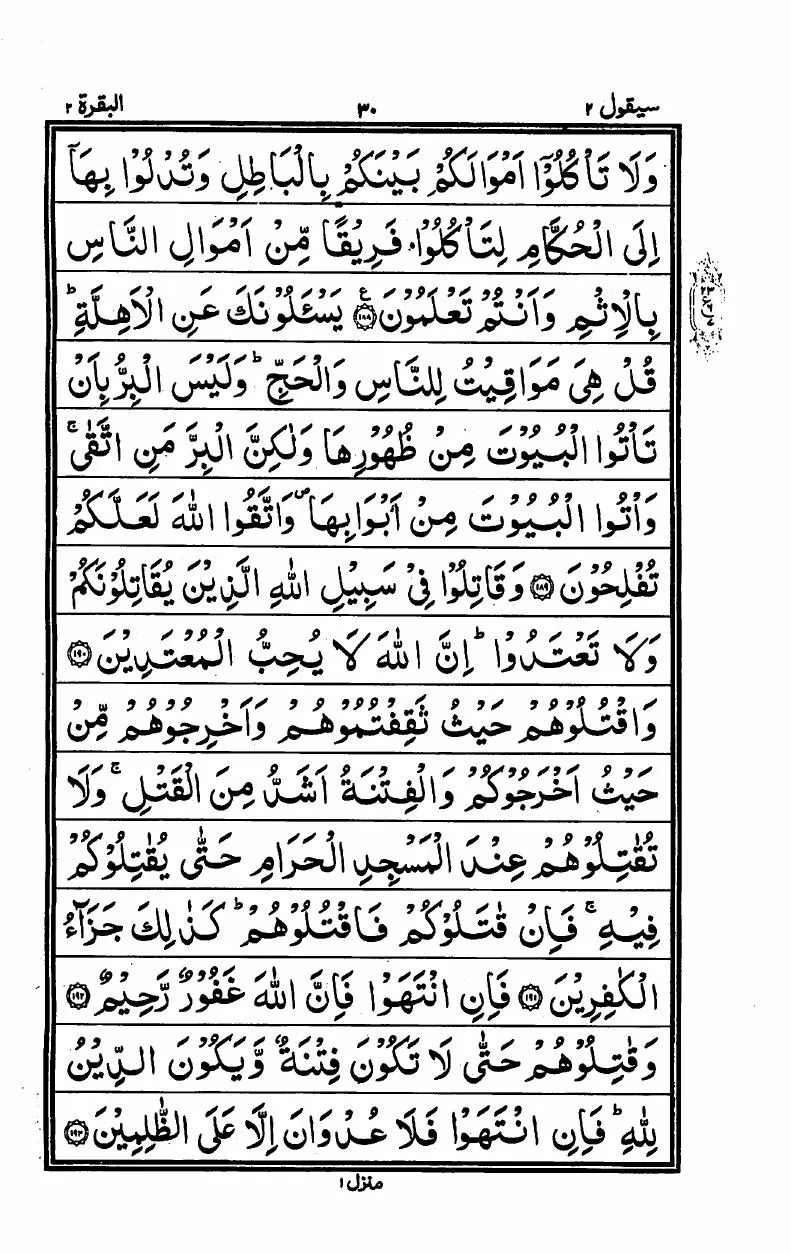 سيقول ٢ ٣٠ البقرة ٢
وَلَا تَأْكُلُوْٓا اَمْوَالَكُمْ بَيْنَكُمْ بِالْبَاطِلِ وَتُدْلُوْا بِهَآ
اِلَى الْحُكَّامِ لِتَأْكُلُوْا فَرِيْقًا مِّنْ اَمْوَالِ النَّاسِ
بِالْاِثْمِ وَاَنْتُمْ تَعْلَمُوْنَ ﴿١٨٨﴾ ع يَسْـَٔلُوْنَكَ عَنِ الْاَهِلَّةِ ؕ
قُلْ هِىَ مَوَاقِيْتُ لِلنَّاسِ وَالْحَجِّ ؕ وَلَيْسَ الْبِرُّ بِاَنْ
تَاْتُوا الْبُيُوْتَ مِنْ ظُهُوْرِهَا وَلٰكِنَّ الْبِرَّ مَنِ اتَّقٰى ۚ
وَاْتُوا الْبُيُوْتَ مِنْ اَبْوَابِهَا ۪ وَاتَّقُوا اللّٰهَ لَعَلَّكُمْ
تُفْلِحُوْنَ ﴿١٨٩﴾ وَقَاتِلُوْا فِىْ سَبِيْلِ اللّٰهِ الَّذِيْنَ يُقَاتِلُوْنَكُمْ
وَلَا تَعْتَدُوْا ؕ اِنَّ اللّٰهَ لَا يُحِبُّ الْمُعْتَدِيْنَ ﴿١٩٠﴾
وَاقْتُلُوْهُمْ حَيْثُ ثَقِفْتُمُوْهُمْ وَاَخْرِجُوْهُمْ مِّنْ
حَيْثُ اَخْرَجُوْكُمْ وَالْفِتْنَةُ اَشَدُّ مِنَ الْقَتْلِ ۚ وَلَا
تُقٰتِلُوْهُمْ عِنْدَ الْمَسْجِدِ الْحَرَامِ حَتّٰى يُقٰتِلُوْكُمْ
فِيْهِ ۚ فَاِنْ قٰتَلُوْكُمْ فَاقْتُلُوْهُمْ ؕ كَذٰلِكَ جَزَآءُ
الْكٰفِرِيْنَ ﴿١٩١﴾ فَاِنِ انْتَهَوْا فَاِنَّ اللّٰهَ غَفُوْرٌ رَّحِيْمٌ ﴿١٩٢﴾
وَقٰتِلُوْهُمْ حَتّٰى لَا تَكُوْنَ فِتْنَةٌ وَّيَكُوْنَ الدِّيْنُ
لِلّٰهِ ؕ فَاِنِ انْتَهَوْا فَلَا عُدْوَانَ اِلَّا عَلَى الظّٰلِمِيْنَ ﴿١٩٣﴾
منزل ١